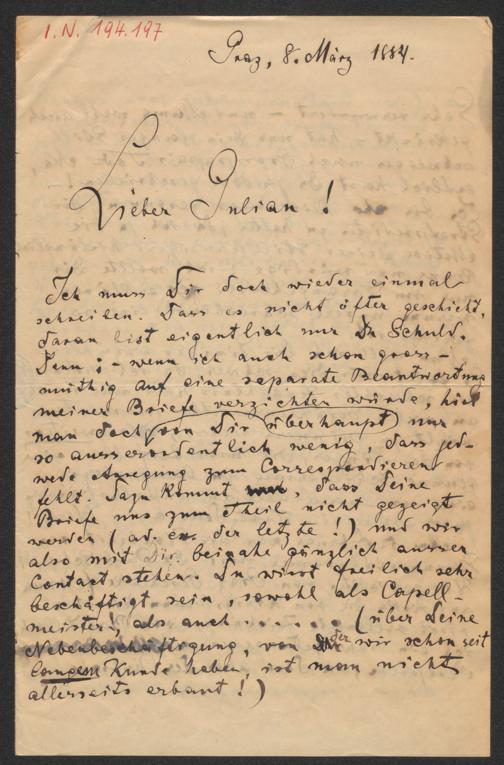 I.N. 194.197
Graz, 8. März 1884.
Lieber Julian!
Ich muss Dir doch wieder einmal
schreiben. Dass es nicht öfter geschieht,
daran bist eigentlich nur Du Schuld.
Denn: – wenn ich auch schon gross-
müthig auf eine separate Beantwortung
meiner Briefe verzichten würde, hört
man doch von Dir überhaupt nur
so ausserordentlich wenig, dass jed-
wede Anregung zum Correspondieren
fehlt. Dazu kommt, dass Deine
Briefe uns zum Theil nicht gezeigt
werden (ad. ex. der letzte!) und wir
also mit Dir beinahe gänzlich ausser
Contact stehen. Du wirst freilich sehr
beschäftigt sein, sowohl als Capell-
meister!, als auch . . . . . . (über Deine
Nebenbeschäftigung, von der wir schon seit
langem Kunde haben, ist man nicht
allerseits erbaut!)